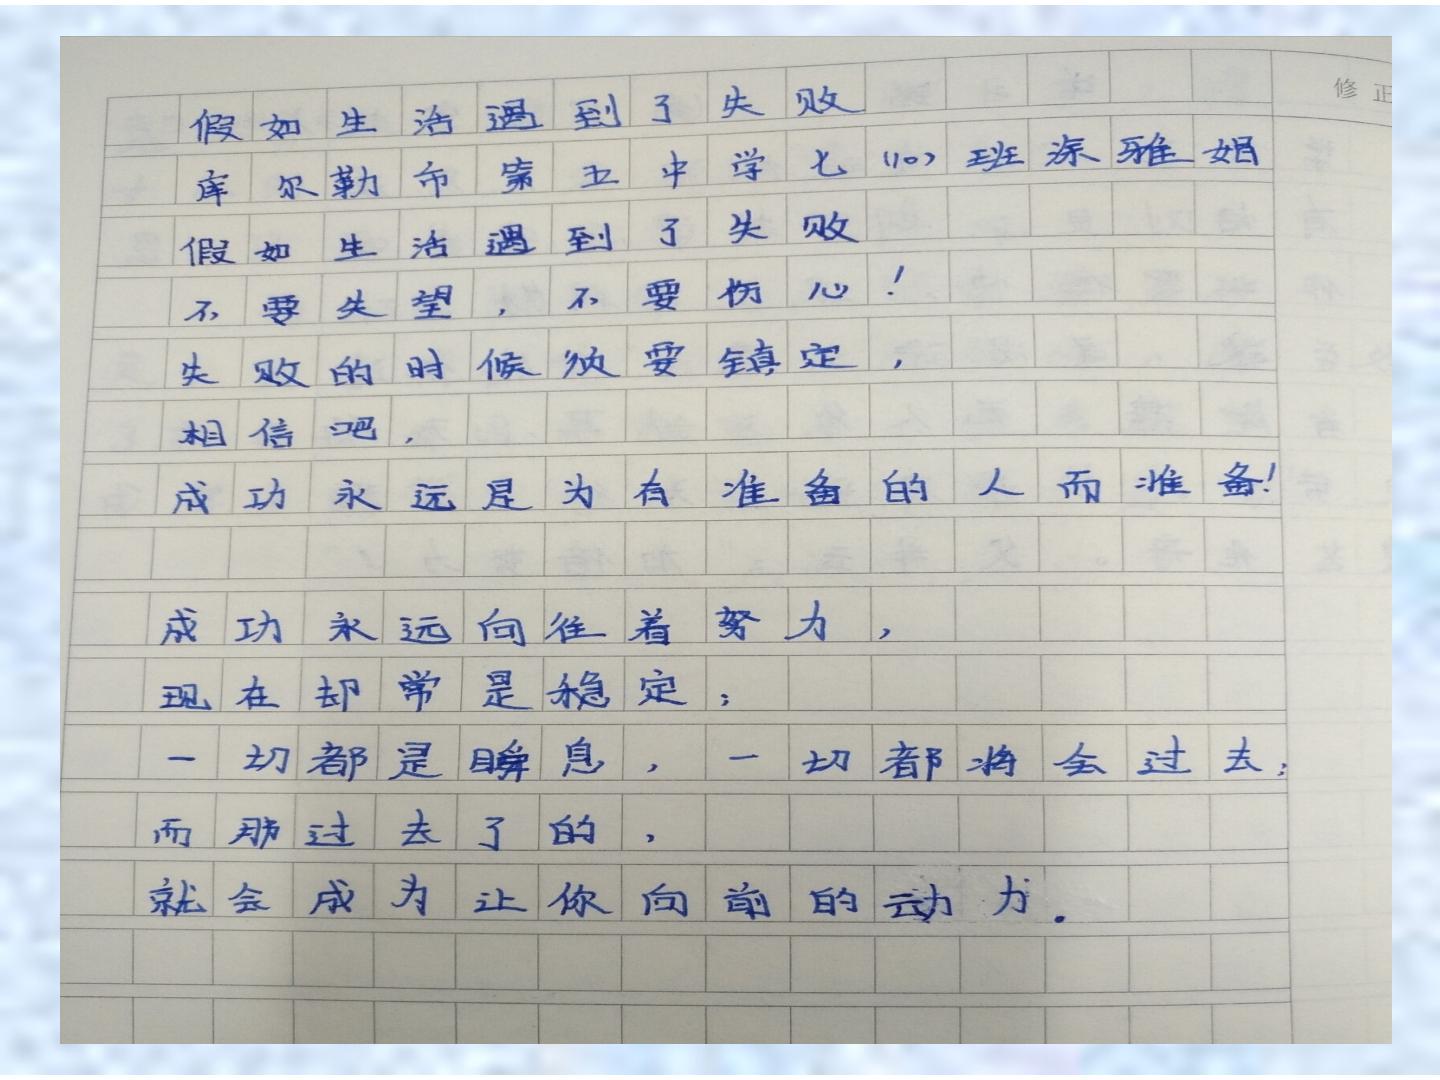 假如生活遇到了失败
库尔勒市第五中学七(10)班涂雅娟
假如生活遇到了失败
不要失望，不要伤心！
失败的时候须要镇定，
相信吧，
成功永远是为有准备的人而准备！
成功永远向往着努力，
现在却常是稳定；
一切都是瞬息，一切都将会过去；
而那过去了的，
就会成为让你向前的动力.
修正